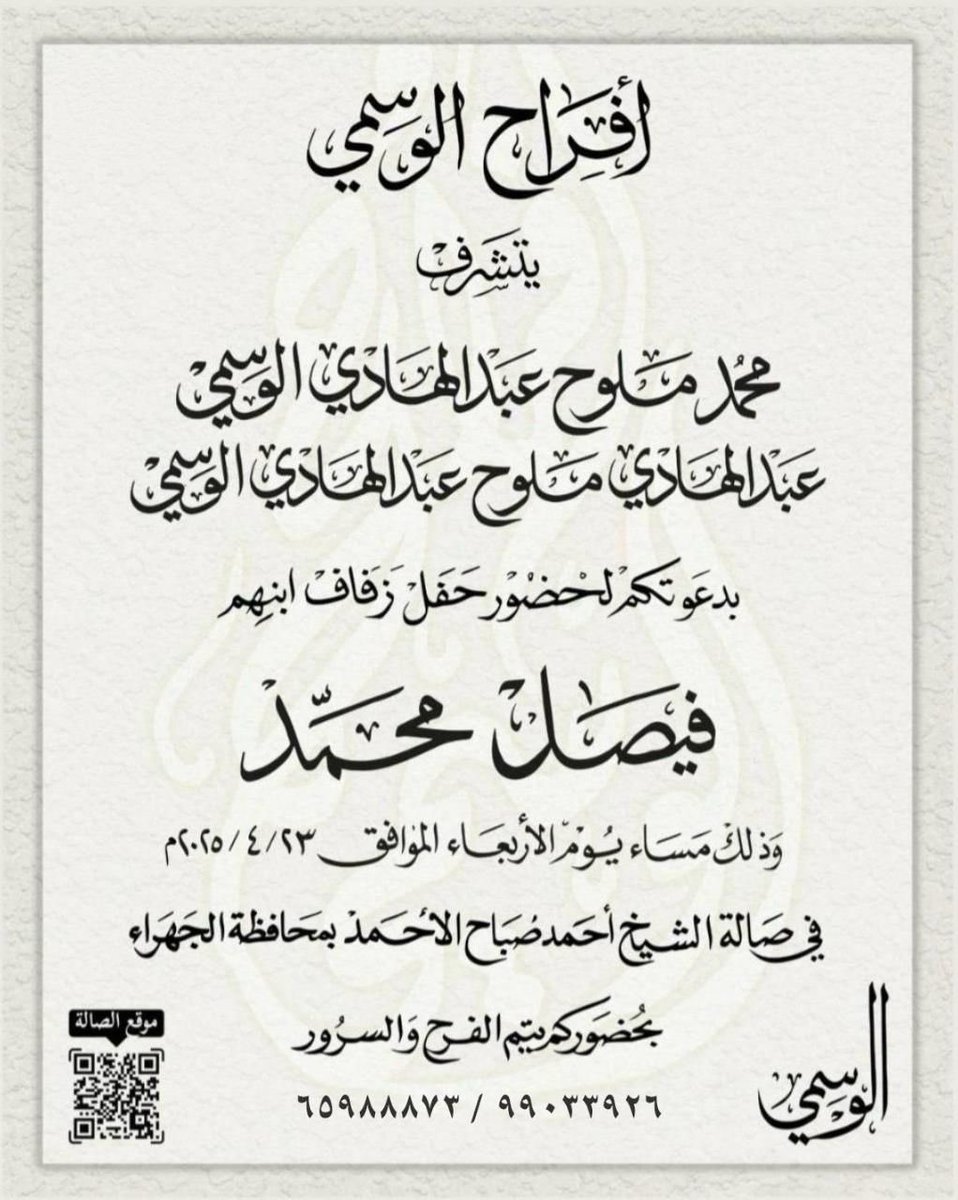 أفراح الوسمي
يتشرف
محمد ملوح عبدالهادي الوسمي
عبدالهادي ملوح عبدالهادي الوسمي
بدعوتكم لحضور حفل زفاف ابنهم
فيصل محمد
وذلك مساء يوم الأربعاء الموافق ٢٠٢٥/٤/٢٣م
في صالة الشيخ أحمد صباح الأحمد بمحافظة الجهراء
بحضوركم يتم الفرح والسرور
٦٥٩٨٨٨٧٣ / ٩٩٠٣٣٩٢٦
موقع الصالة
الوسمي